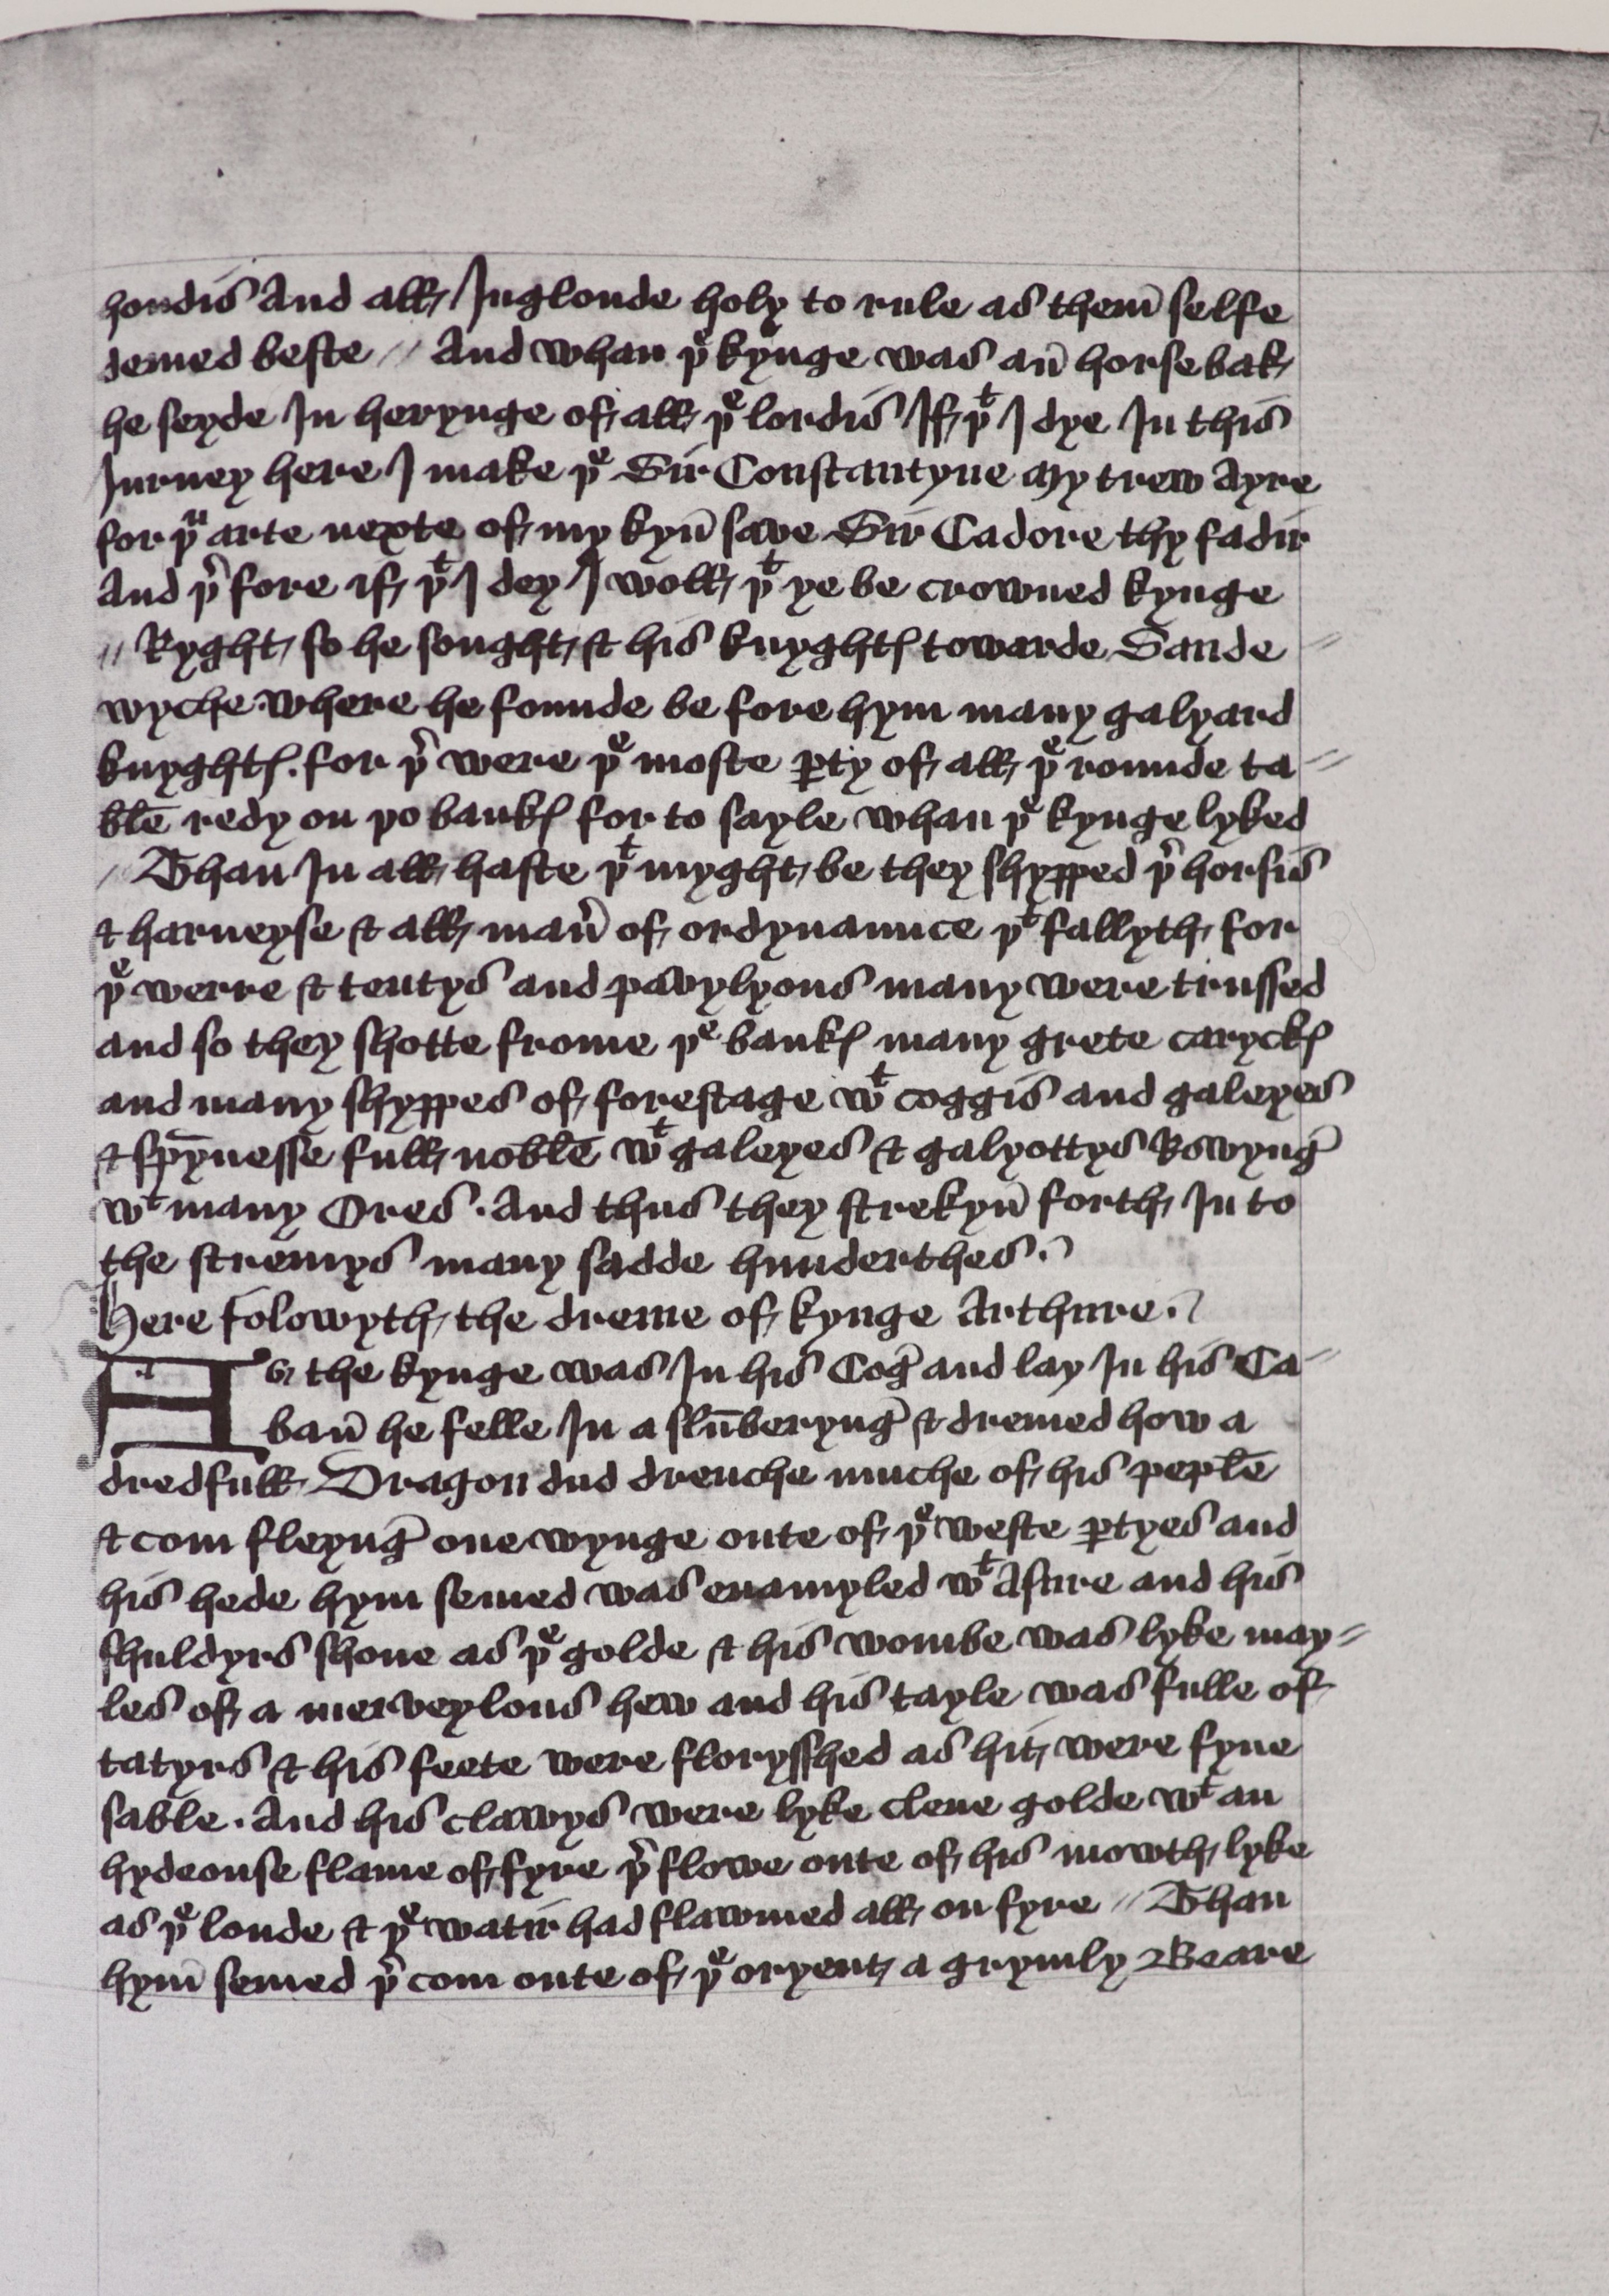 hondis And all Inglonde holy to rule as them̄ selfe
demed beste // And whan þͤ kynge was an̄ horse bak
he seyde In herynge of all þͤ lordis If þͭ I dye In this
Jurney here I make þͤ Sir Constantyne My trew Ayre
for þᵘ arte nexte of my kyn̄ save Sir Cadore thy fadir
And þ̉ fore if þͭ I dey I woll þͭ ye be crowned kynge
// Ryght so he sought & his knyghtꝭ towarde Sande =
wyche where he founde be fore hym many galyard
knyghtꝭ . for þ̉ were þͤ moste ꝑty of all þͤ rounde ta =
blē redy on þo bankꝭ for to sayle whan þͤ kynge lyked
// Than In all haste þͭ myght be they shypped þ̉ horsis
& harneyse & all man̉ of ordynaunce þͭ fallyth for
þͤ werre & tentys and pavylyons many were trussed
and so they shotte frome þͤ bankꝭ many grete caryckꝭ
and many shyppes of forestage wͭ coggis and galeyes
& spȳnesse full noblē wͭ galeyes & galyottys Rowynḡ
wͭ many Ores . And thus they strekyn̄ forth In to
the stremys many sadde hunderthes .
Here folowyth the dreme of kynge Arthure .
As the kynge was In his Coḡ and lay In his Ca =
ban̄ he felle In a slūberynḡ & dremed how a
dredfull Dragon dud drenche muche of his peplē
& com fleynḡ one wynge oute of þͤ weste ꝑtyes and
his hede hym semed was enamyled wͭ Asure and his
shuldyrs shone as þͤ golde & his wombe was lyke may =
les of a merveylous hew and his tayle was fulle of
tatyrs & his feete were florysshed as hit were fyne
sable . And his clawys were lyke clene golde wͭ an
hydeouse flame of fyre þ̉ flowe oute of his mowth lyke
as þͤ londe & þͤ watir had flawmed all on fyre // Than
hym̄ semed þ̉ com oute of þͤ oryent a grymly Beare